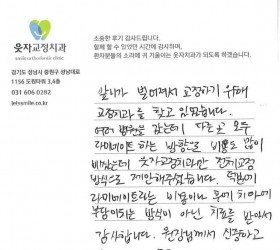 웃자교정치과
smile orthodontic clinic
경기도 성남시 중원구 성남대로
1156 도원타워 3,4층
031 606 0282
letssmile.co.kr
소중한 후기 감사드립니다.
함께 할 수 있었던 시간에 감사하며,
환자분들의 소리에 귀 기울이는 웃자치과가 되도록 하겠습니다.
앞니가 벌어져서 교정하기 위해
교정치과를 찾고 있었습니다.
여러 병원을 갔는데 다른곳 모두
라미네이트 하는 방향으로 비용도 많이
비쌌는데 웃자교정치과만 전치교정
방식으로 제안해주셨습니다. 덕분에
라미네이트라는 비용이나 후에 치아에
부담이되는 방식이 아닌 치료를 받아서
감사합니다. 원장님께서 신중하고